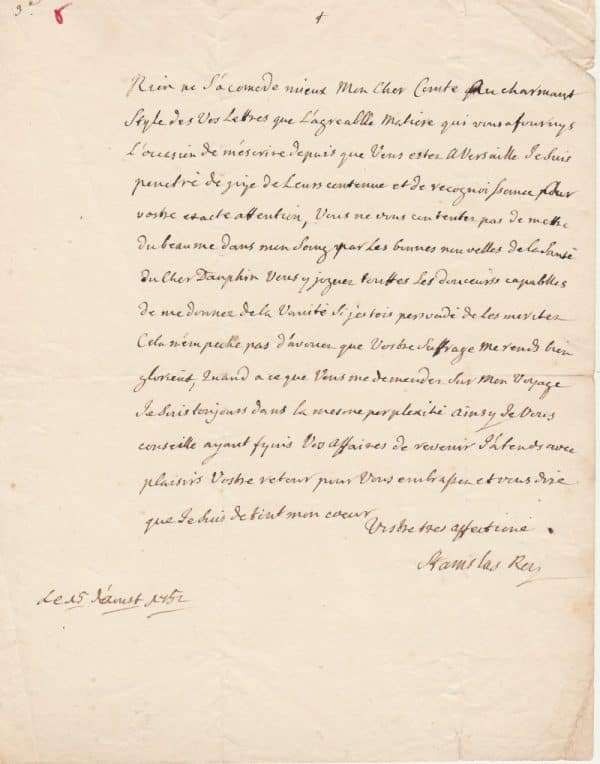 3e 8
4
Rien ne s'acomode mieux Mon Cher Comte au charmant
Style des Vos Lettres que L'agreablle Matiere qui vous a fourny
L'occasion de m'escrire depuis que Vous estez a Versaille Je suis
penetré de joye de Leurs contenue et de recognoissance pour
vostre exacte attention, Vous ne vous contentez pas de mettre
du beaume dans mon Sang par Les bonnes nouvelles de la Santé
du Cher Dauphin Vous y joguez touttes Les douceurs capablles
de me donner de la Vanité Si j'estois persvadé de les meriter
Cela n'empeche pas d'avouer que Vostre Suffrage me rends bien
glorieux, Quand a ce que Vous me demandez Sur Mon Voyage
Je Suis toujours dans la mesme perplexité ainsy Je Vous
conseille ayant fynis Vos affaires de revenir J'atends avec
plaisirs Vostre retour pour Vous embrasser et vous dire
que Je Suis de tout mon coeur
Vostre tres affectioné
Stanislas Roy
Le 15 d'aoust 1752